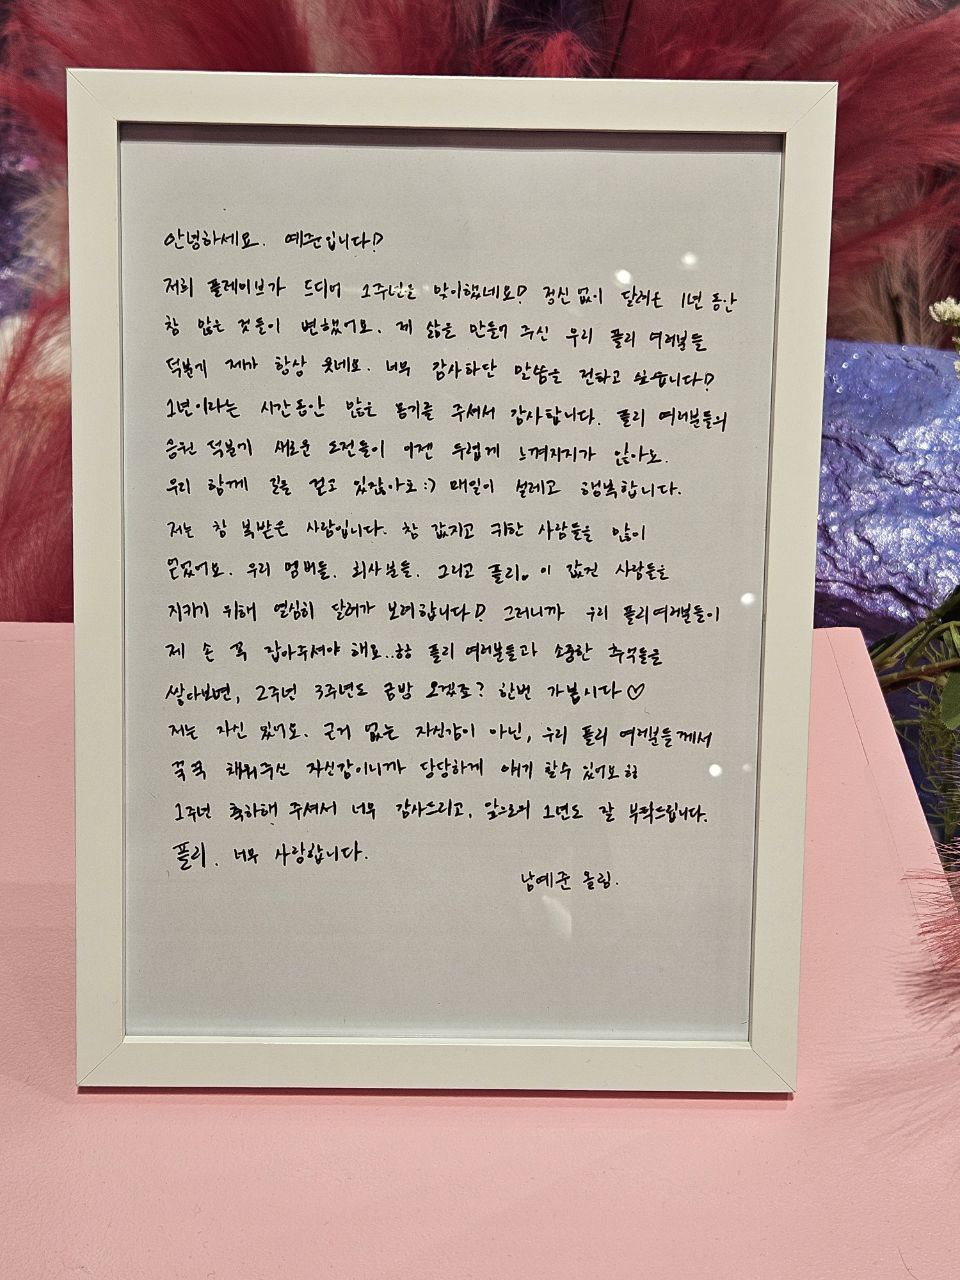 안녕하세요. 예준입니다!
저희 플레이브가 드디어 1주년을 맞이했네요! 정신 없이 달려온 1년 동안
참 많은 것들이 변했어요. 제 삶을 만들어 주신 우리 플리 여러분들
덕분에 제가 항상 웃네요. 너무 감사하단 말씀을 전하고 싶습니다!
1년이라는 시간동안 많은 용기를 주셔서 감사합니다. 플리 여러분들의
응원 덕분에 새로운 도전들이 이젠 두렵게 느껴지지가 않아요.
우리 함께 길을 걷고 있잖아요:) 매일이 설레고 행복합니다.
저는 참 복받은 사람입니다. 참 값지고 귀한 사람들을 많이
얻었어요. 우리 멤버들. 회사분들. 그리고 플리. 이 값진 사람들을
지키기 위해 열심히 달려가 보려합니다! 그러니까 우리 플리여러분들이
제 손 꼭 잡아주셔야 해요..ㅎㅎ 플리 여러분들과 소중한 추억들을
쌓다보면, 2주년 3주년도 금방 오겠죠? 한번 가봅시다♡
저는 자신 있어요. 근거 없는 자신감이 아닌, 우리 플리 여러분들께서
꾹꾹 채워주신 자신감이니까 당당하게 얘기 할수 있어요ㅎㅎ
1주년 축하해 주셔서 너무 감사드리고, 앞으로의 1년도 잘 부탁드립니다.
플리. 너무 사랑합니다.
남예준 올림.